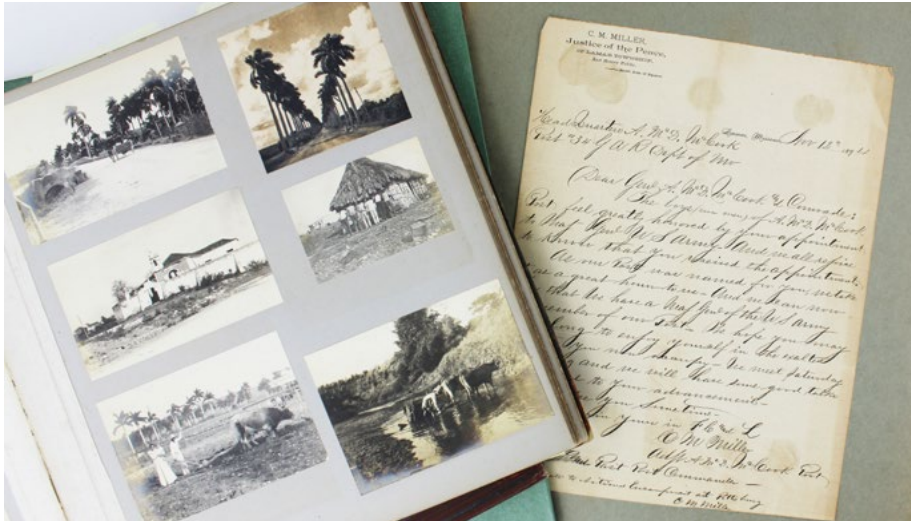 C. M. MILLER,
Justice of the Peace,
Nov 12th
Head Quarters A. McD. McCook
Post No 34 G A R Dept of Mo
Dear Genl A. McD. McCook & Comrade:
The boys of A. McD. McCook
Post feel greatly honored by your appointment
to Maj Genl U S Army. And we all rejoice
to know that you received the appointment.
As our Post was named for you we take
as a great honor to us. And we can now
that we have a Maj Genl of the U S Army
member of our Post. We hope you may
long to enjoy yourself in the exalted
you now occupy. We meet Saturday
and we will have some good talks
to your advancement.
you sometime.
Yours in F C & L
C M Miller
Adjt A. McD. McCook Post
Post Commander
National Encampment at
C M Miller